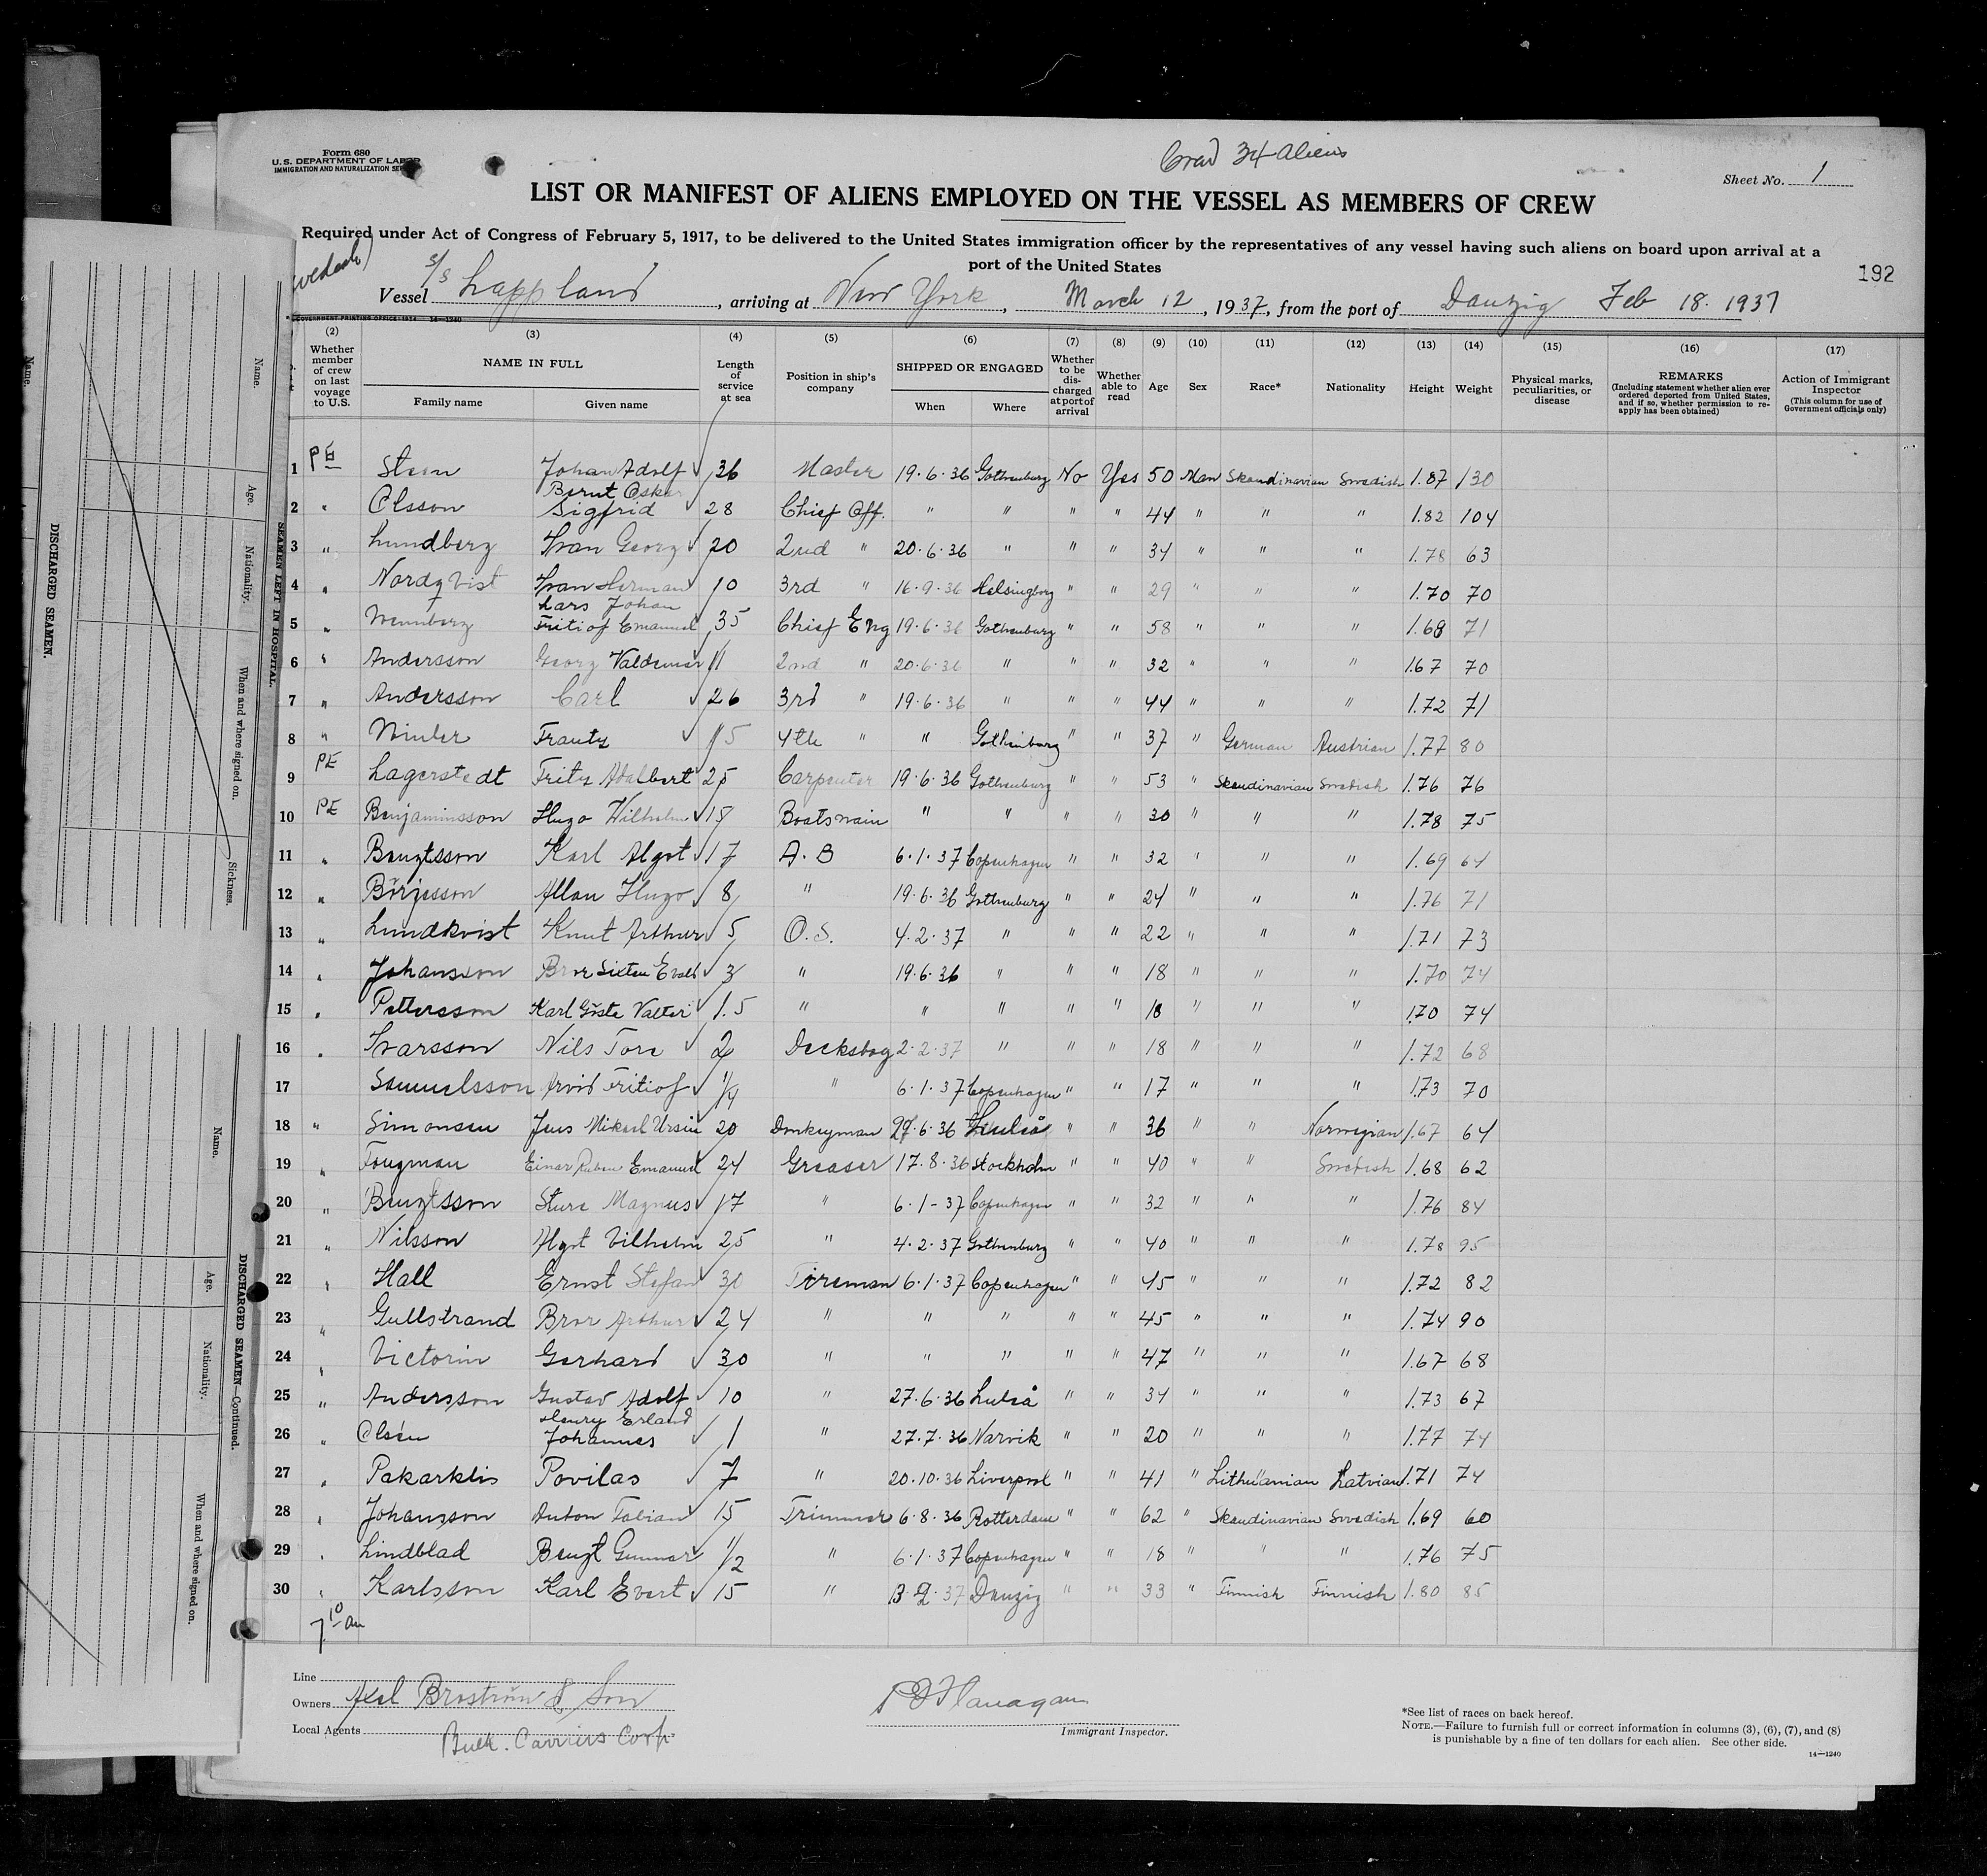 Form 680
U.S. DEPARTMENT OF LABOR
IMMIGRATION AND NATURALIZATION SER
34 Aliens
Sheet No. 1
LIST OR MANIFEST OF ALIENS EMPLOYED ON THE VESSEL AS MEMBERS OF CREW
Required under Act of Congress of February 5, 1917, to be delivered to the United States immigration officer by the representatives of any vessel having such aliens on board upon arrival at a
port of the United States
192
Vessel S/S Lappland, arriving at New York, March 12, 1937, from the port of Danzig Feb 18. 1937
GOVERNMENT PRINTING OFFICE 14—1240
(2) (3) (4) (5) (6) (7) (8) (9) (10) (11) (12) (13) (14) (15) (16) (17)
Whether member of crew on last voyage to U.S. NAME IN FULL Family name Given name Length of service at sea Position in ship's company SHIPPED OR ENGAGED When Where Whether to be discharged at port of arrival Whether able to read Age Sex Race* Nationality Height Weight Physical marks, peculiarities, or disease REMARKS (Including statement whether alien ever ordered deported from United States, and if so, whether permission to re-apply has been obtained) Action of Immigrant Inspector (This column for use of Government officials only)
1 PE Steen Johan Adolf √ 36 Master 19.6.36 Gothenburg No Yes 50 Man Skandinavian Swedish 1.87 130
2 " Olsson Bernt Oskar Sigfrid 28 Chief Off. " " " " 44 " " " 1.82 104
3 " Lundberg Ivan Georg √ 20 2nd " 20.6.36 " " " 34 " " " 1.78 63
4 " Nordqvist Ivan Herman 10 3rd " 16.9.36 Helsingborg " " 29 " " " 1.70 70
5 " Wennberg Lars Johan Fritiof Emanuel 35 Chief Eng 19.6.36 Gothenburg " " 58 " " " 1.68 71
6 " Andersson Georg Valdemar 11 2nd " 20.6.36 " " " 32 " " " 1.67 70
7 " Andersson Carl √ 26 3rd " 19.6.36 " " " 44 " " " 1.72 71
8 " Winler Frantz √ 15 4th " " Gothenburg " " 37 " German Austrian 1.77 80
9 PE Lagerstedt Fritz Adalbert 25 Carpenter 19.6.36 Gothenburg " " 53 " Skandinavian Swedish 1.76 76
10 PE Benjaminsson Hugo Wilhelm √ 15 Boatswain " " " " 30 " " " 1.78 75
11 " Bengtsson Karl Algot √ 17 A.B 6.1.37 Copenhagen " " 32 " " " 1.69 64
12 " Börjesson Allan Hugo √ 8 " 19.6.36 Gothenburg " " 24 " " " 1.76 71
13 " Lundkvist Knut Arthur √ 5 O.S. 4.2.37 " " " 22 " " " 1.71 73
14 " Johansson Bror Sixten Evald √ 3 " 19.6.36 " " " 18 " " " 1.70 74
15 " Pettersson Karl Gösta Valter √ 1.5 " " " " " 18 " " " 1.70 74
16 " Ivarsson Nils Tore √ 2 Decksboy 2.2.37 " " " 18 " " " 1.72 68
17 Samuelsson Arvid Fritiof √ 1/4 " 6.1.37 Copenhagen " " 17 " " " 1.73 70
18 " Simonsen Jens Mikael Ursin 20 Donkeyman 27.6.36 Luleå " " 36 " " Norwegian 1.67 64
19 " Fougman Einar Ruben Emanuel 24 Greaser 17.8.36 Stockholm " " 40 " " Swedish 1.68 62
20 " Bengtsson Sture Magnus √ 17 " 6.1-37 Copenhagen " " 32 " " " 1.76 84
21 " Nilsson Algot Vilhelm 25 " 4.2.37 Gothenburg " " 40 " " " 1.78 95
22 " Hall Ernst Stefan 30 Fireman 6.1.37 Copenhagen " " 45 " " " 1.72 82
23 " Gullstrand Bror Arthur √ 24 " " " " " 45 " " " 1.74 90
24 " Victorin Gerhard √ 30 " " " " " 47 " " " 1.67 68
25 " Andersson Gustav Adolf √ 10 " 27.6.36 Luleå " " 34 " " " 1.73 67
26 " Olsén Henry Erland Johannes √ 1 " 27.7.36 Narvik " " 20 " " " 1.77 74
27 " Pakarklis Povilas √ 7 " 20.10.36 Liverpool " " 41 " Lithuanian Latvian 1.71 74
28 " Johansson Anton Fabian 15 Trimmer 6.8.36 Rotterdam " " 62 " Skandinavian Swedish 1.69 60
29 " Lindblad Bengt Gunnar √ 1/2 " 6.1.37 Copenhagen " " 18 " " " 1.76 75
30 " Karlsson Karl Evert √ 15 " 13.2.37 Danzig " " 33 " Finnish Finnish 1.80 85
7 10 am
Line
Owners Axel Broström & Son
Local Agents Bulk. Carriers Corp.
Flanagan
Immigrant Inspector.
*See list of races on back hereof.
NOTE.—Failure to furnish full or correct information in columns (3), (6), (7), and (8)
is punishable by a fine of ten dollars for each alien. See other side.
14—1240
Name.
DISCHARGED SEAMEN.
Name.
Age.
Nationality.
When and where signed on.
Sickness.
SEAMEN LEFT IN HOSPITAL.
Name.
Age.
Nationality.
When and where signed on.
DISCHARGED SEAMEN—Continued.